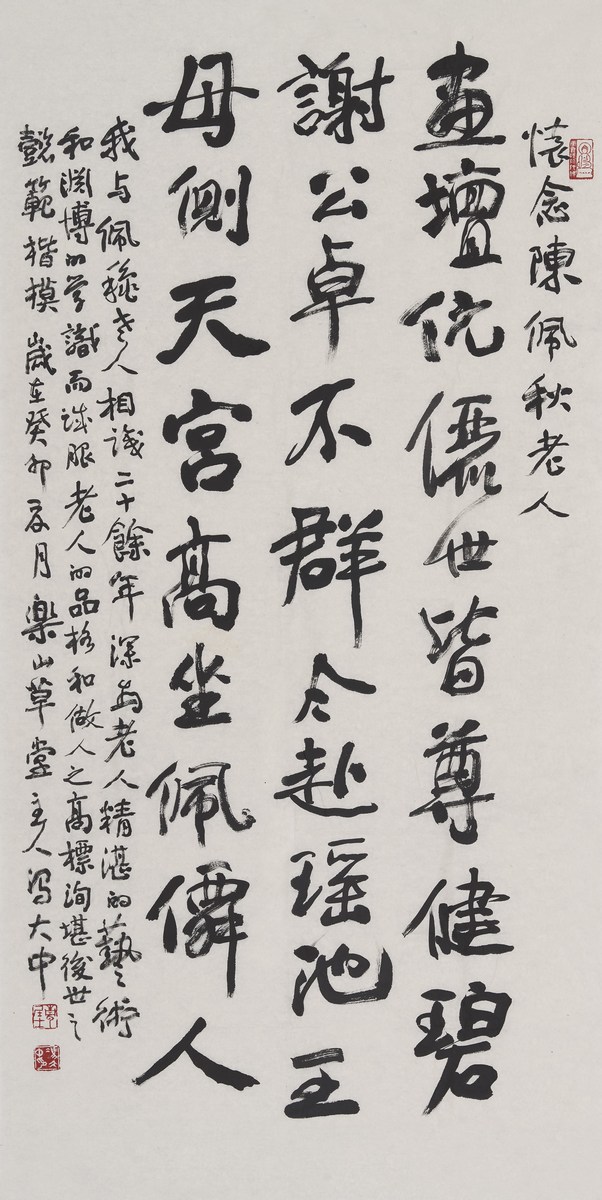 懷念陳佩秋老人
畫壇伉儷世皆尊健碧
謝公卓不群今赴瑶池王
母側天宮高坐佩僊人
我与佩龝老人相識二十餘年深為老人精湛的藝術
和渊博的学識而誠服老人的品格和做人之高標洵堪後世之
懿範楷模歲在癸卯夏月樂山草堂主人馮大中